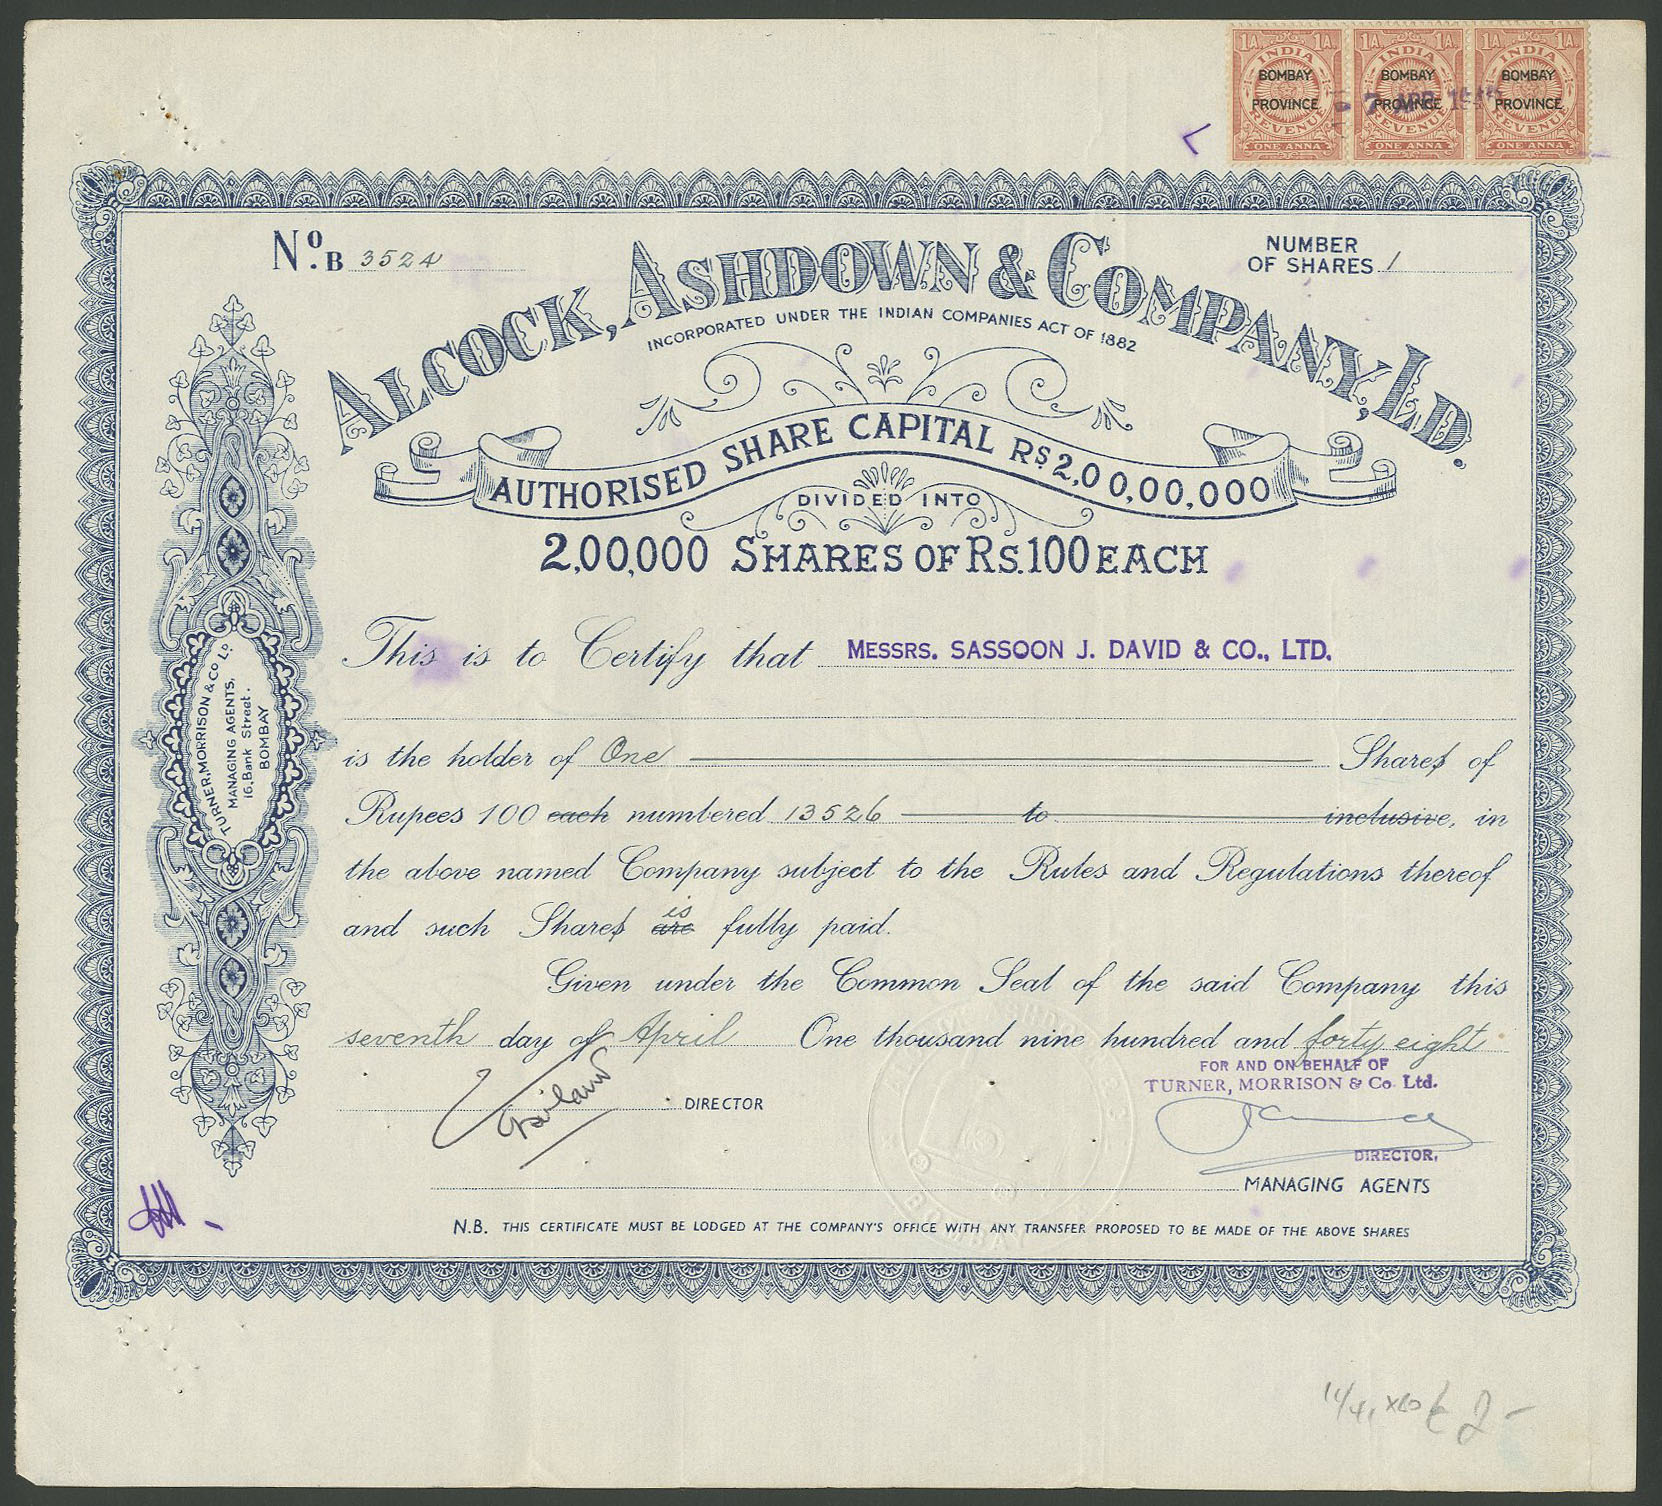 1A INDIA 1A
BOMBAY
PROVINCE
REVENUE
ONE ANNA
1A INDIA 1A
BOMBAY
PROVINCE
REVENUE
ONE ANNA
1A INDIA 1A
BOMBAY
PROVINCE
REVENUE
ONE ANNA
7 APR
No. B 3524
NUMBER
OF SHARES 1
ALCOCK, ASHDOWN & COMPANY, LD.
INCORPORATED UNDER THE INDIAN COMPANIES ACT OF 1882
AUTHORISED SHARE CAPITAL RS 2,00,00,000
DIVIDED INTO
2,00,000 SHARES OF RS.100 EACH
TURNER, MORRISON & CO LD.
MANAGING AGENTS,
16, Bank Street.
BOMBAY
This is to Certify that MESSRS. SASSOON J. DAVID & CO., LTD.
is the holder of One Shares of
Rupees 100 each numbered 13526 to inclusive, in
the above named Company subject to the Rules and Regulations thereof
is
and such Shares are fully paid.
Given under the Common Seal of the said Company this
seventh day of April One thousand nine hundred and forty eight
FOR AND ON BEHALF OF
TURNER, MORRISON & Co. Ltd.
DIRECTOR
DIRECTOR,
MANAGING AGENTS
N.B. THIS CERTIFICATE MUST BE LODGED AT THE COMPANY'S OFFICE WITH ANY TRANSFER PROPOSED TO BE MADE OF THE ABOVE SHARES